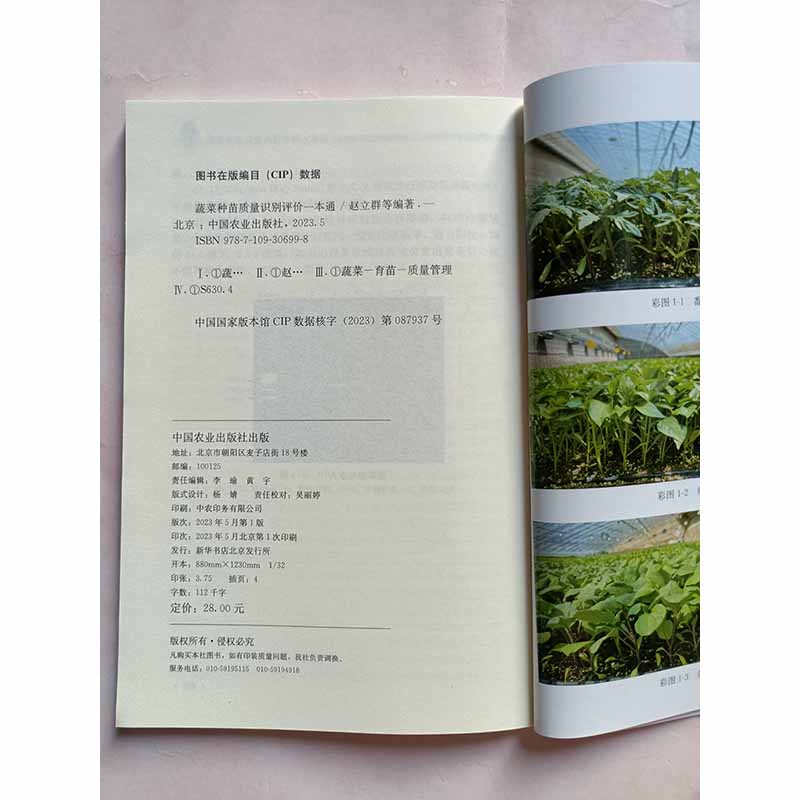 图书在版编目（CIP）数据
蔬菜种苗质量识别评价一本通 / 赵立群等编著. —
北京：中国农业出版社，2023.5
ISBN 978-7-109-30699-8
Ⅰ.①蔬… Ⅱ.①赵… Ⅲ.①蔬菜－育苗－质量管理
Ⅳ.①S630.4
中国国家版本馆 CIP 数据核字（2023）第 087937 号
中国农业出版社出版
地址：北京市朝阳区麦子店街 18 号楼
邮编：100125
责任编辑：李 瑜 黄 宇
版式设计：杨 婧 责任校对：吴丽婷
印刷：中农印务有限公司
版次：2023 年 5 月第 1 版
印次：2023 年 5 月北京第 1 次印刷
发行：新华书店北京发行所
开本：880mm×1230mm 1/32
印张：3.75 插页：4
字数：112 千字
定价：28.00 元
版权所有·侵权必究
凡购买本社图书，如有印装质量问题，我社负责调换。
服务电话：010-59195115 010-59194918
彩图 1-1 番
彩图 1-2
彩图 1-3